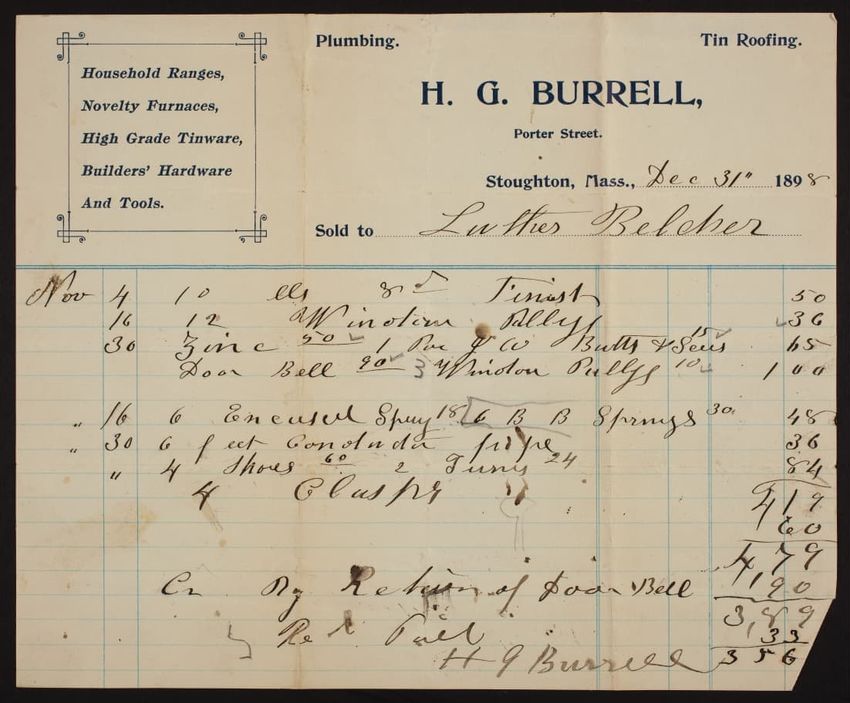 Household Ranges,
Novelty Furnaces,
High Grade Tinware,
Builders' Hardware
And Tools.
Plumbing. Tin Roofing.
H. G. BURRELL,
Porter Street.
Stoughton, Mass., Dec 31" 1898
Sold to Luther Belcher
Nov 4 10 lbs 8d Finish 50
16 12 Window Pullys 36
30 Zinc 50 1 & Butts & 15 65
Door Bell 90 3 Window Pullys 10 1 00
" 16 6 Spring 18 6 B B Springs 30 48
" 30 6 feet Conductor pipe 36
" 4 Shoes 60 2 24 84
4 Clasps 4 19
60
4 79
Cr By Return of Door Bell 90
3,89
33
Rec Paid
H G Burrell 3 56